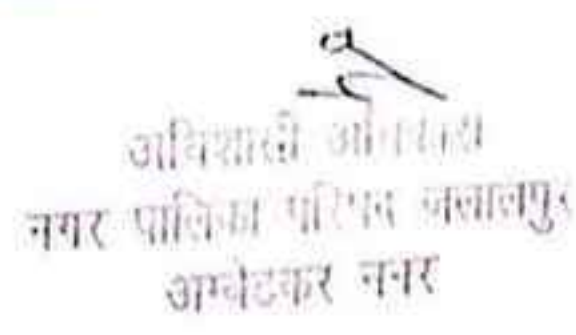 अधिशासी अधिकारी
नगर पालिका परिषद जलालपुर
अम्बेडकर नगर